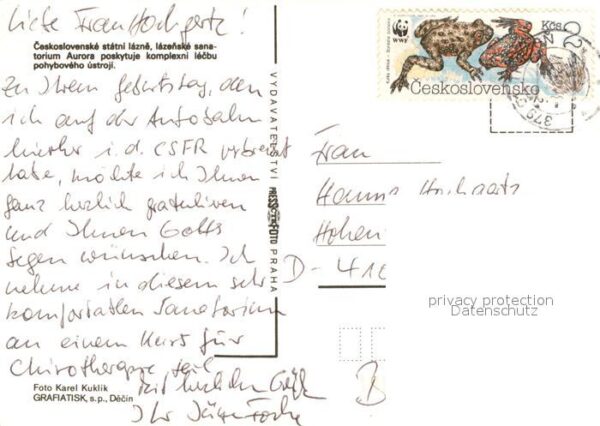 Liebe Frau Hochgertz!
Československé státní lázně, lázeňské sana-
torium Aurora poskytuje komplexní léčbu
pohybového ústrojí.
Zu Ihrem Geburtstag, den
ich auf der Autobahn
hierher i. d. CSFR verbracht
habe, möchte ich Ihnen
ganz herzlich gratulieren
und Ihnen Gottes
Segen wünschen. Ich
nehme in diesem sehr
komfortablen Sanatorium
an einem Kurs für
Chirotherapie teil
Mit herzlichen Grüßen
Ihr
Foto Karel Kuklík
GRAFIATISK, s.p., Děčín
VYDAVATELSTVÍ PRESSFOTO PRAHA
WWF
Kčs 2
Československo
379
Frau
Hanna
Hohen
D-418
D
privacy protection
Datenschutz